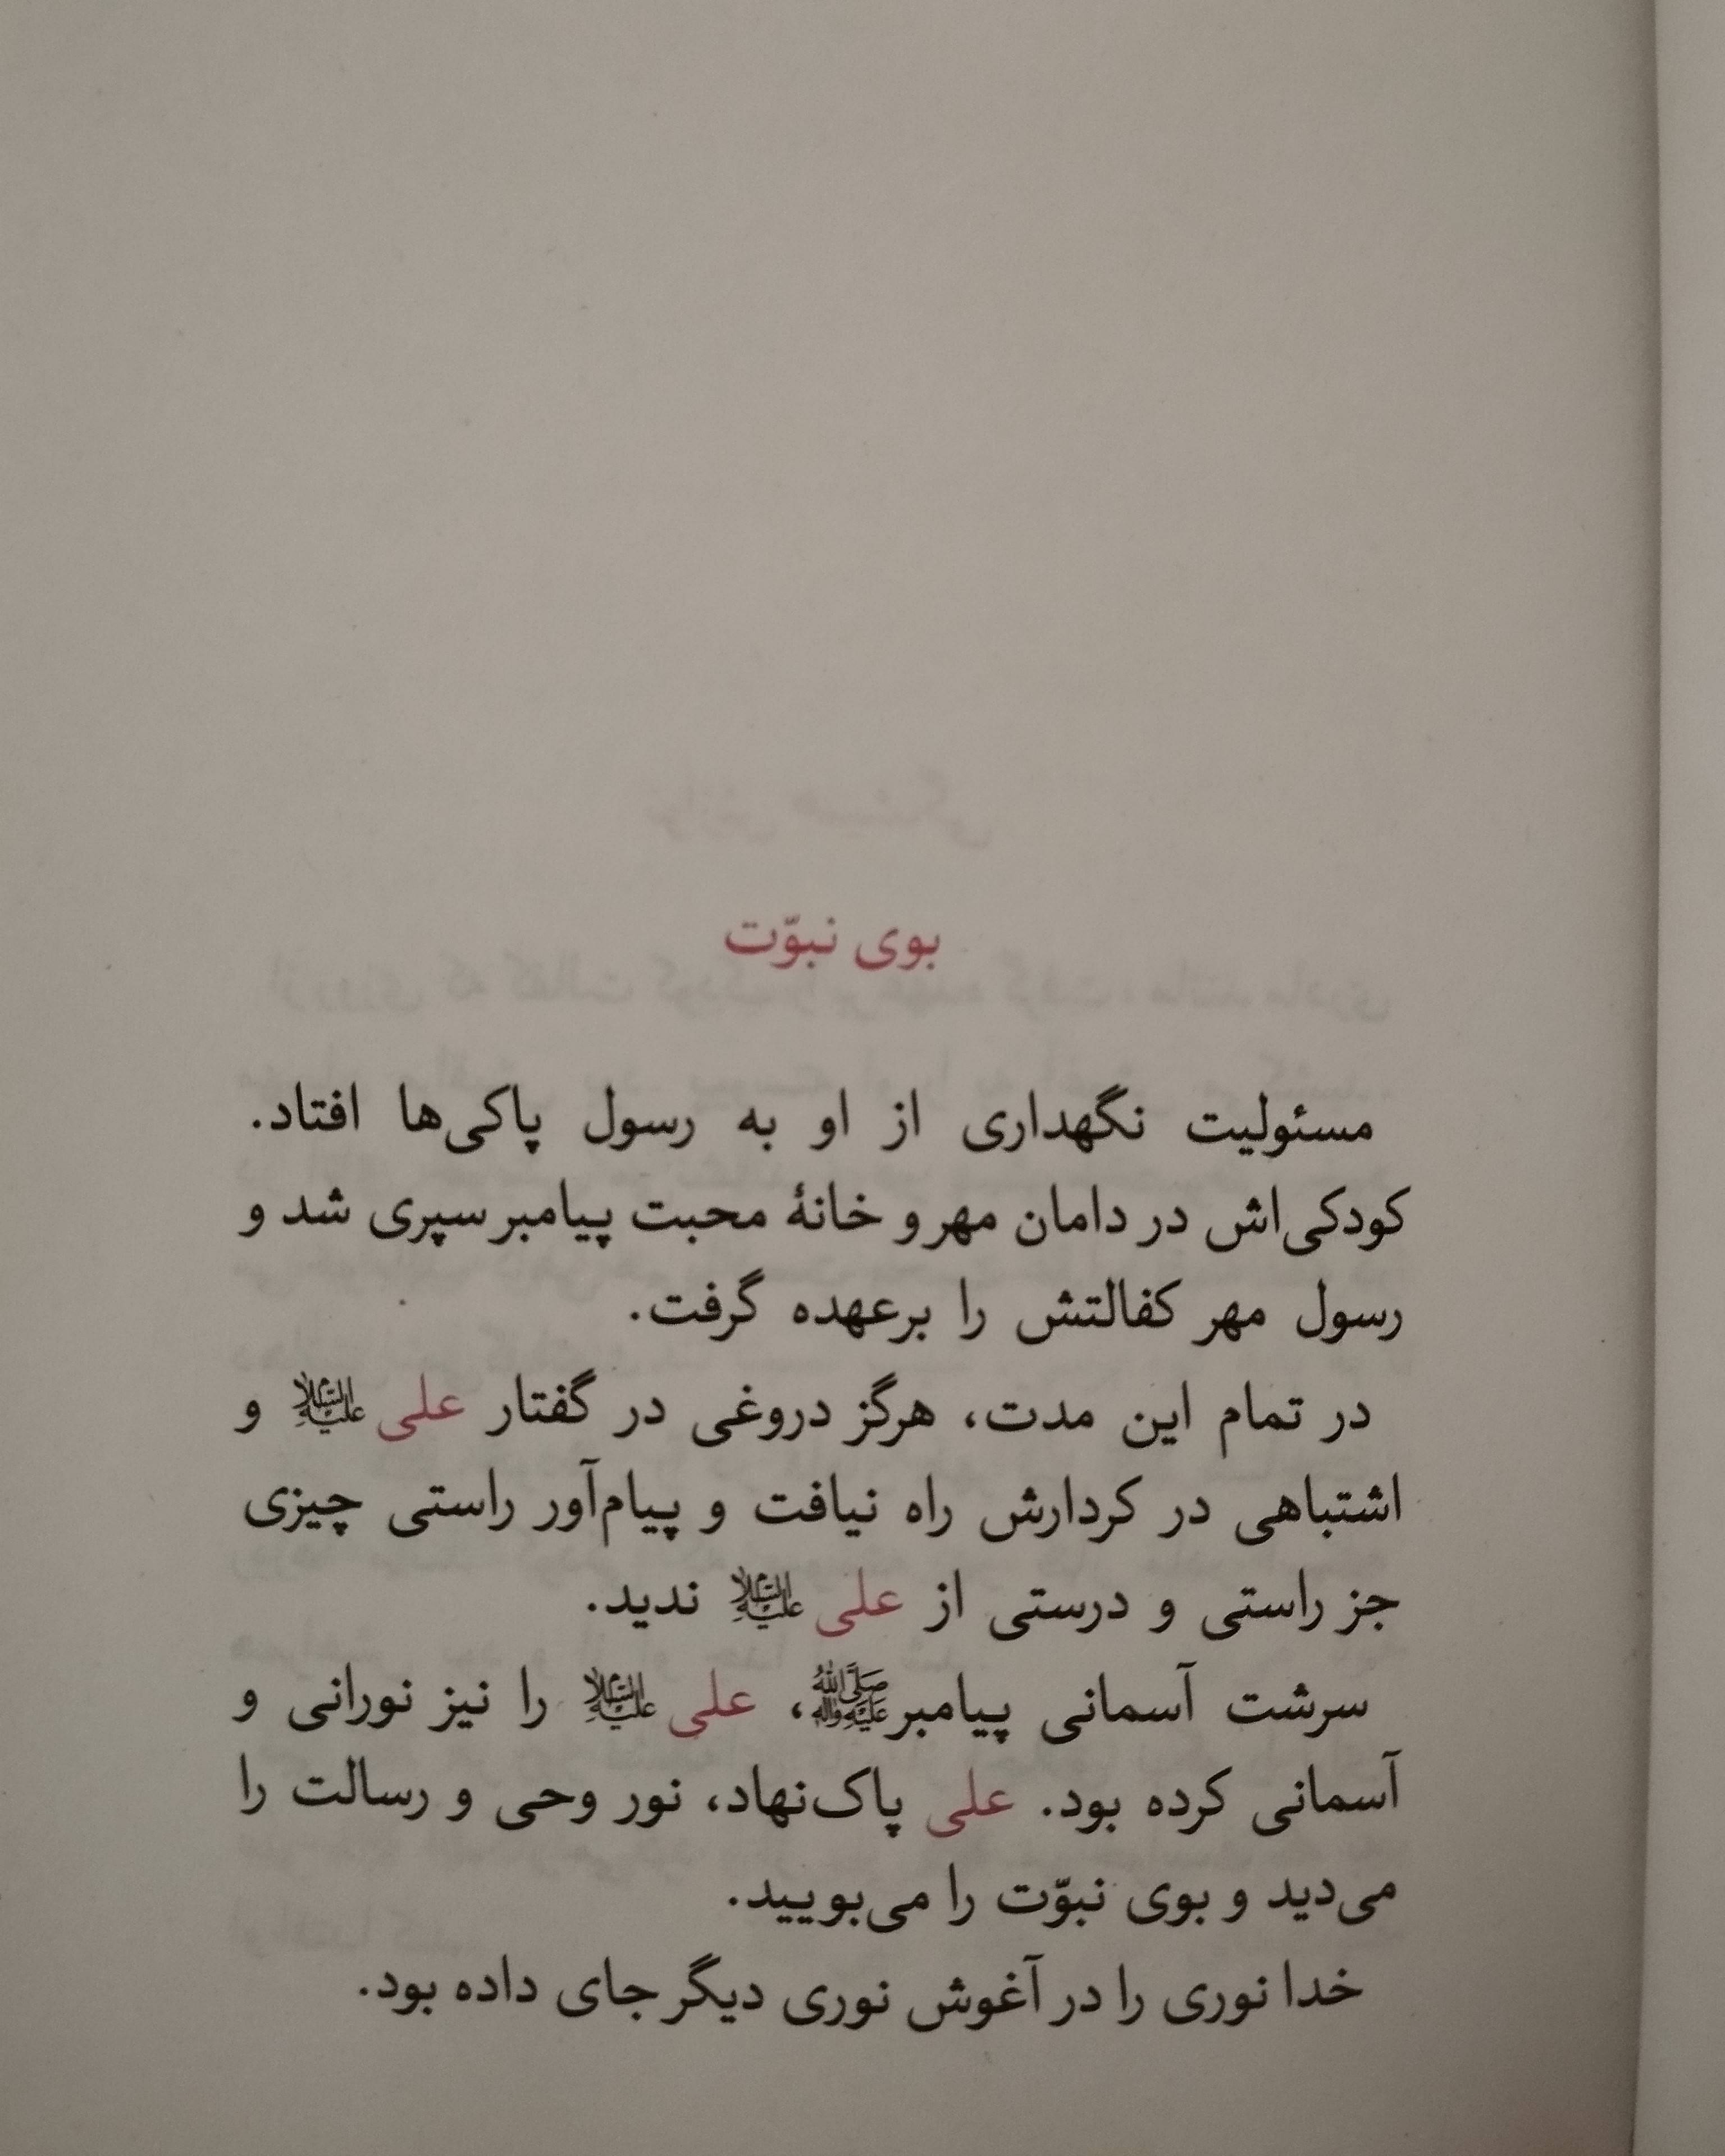 بوی نبوّت
مسئولیت نگهداری از او به رسول پاکی‌ها افتاد.
کودکی‌اش در دامان مهر و خانهٔ محبت پیامبر سپری شد و
رسول مهر کفالتش را برعهده گرفت.
در تمام این مدت، هرگز دروغی در گفتار علی علیه‌السلام و
اشتباهی در کردارش راه نیافت و پیام‌آور راستی چیزی
جز راستی و درستی از علی علیه‌السلام ندید.
سرشت آسمانی پیامبر صلی‌الله علیه وآله، علی علیه‌السلام را نیز نورانی و
آسمانی کرده بود. علی پاک‌نهاد، نور وحی و رسالت را
می‌دید و بوی نبوّت را می‌بویید.
خدا نوری را در آغوش نوری دیگر جای داده بود.